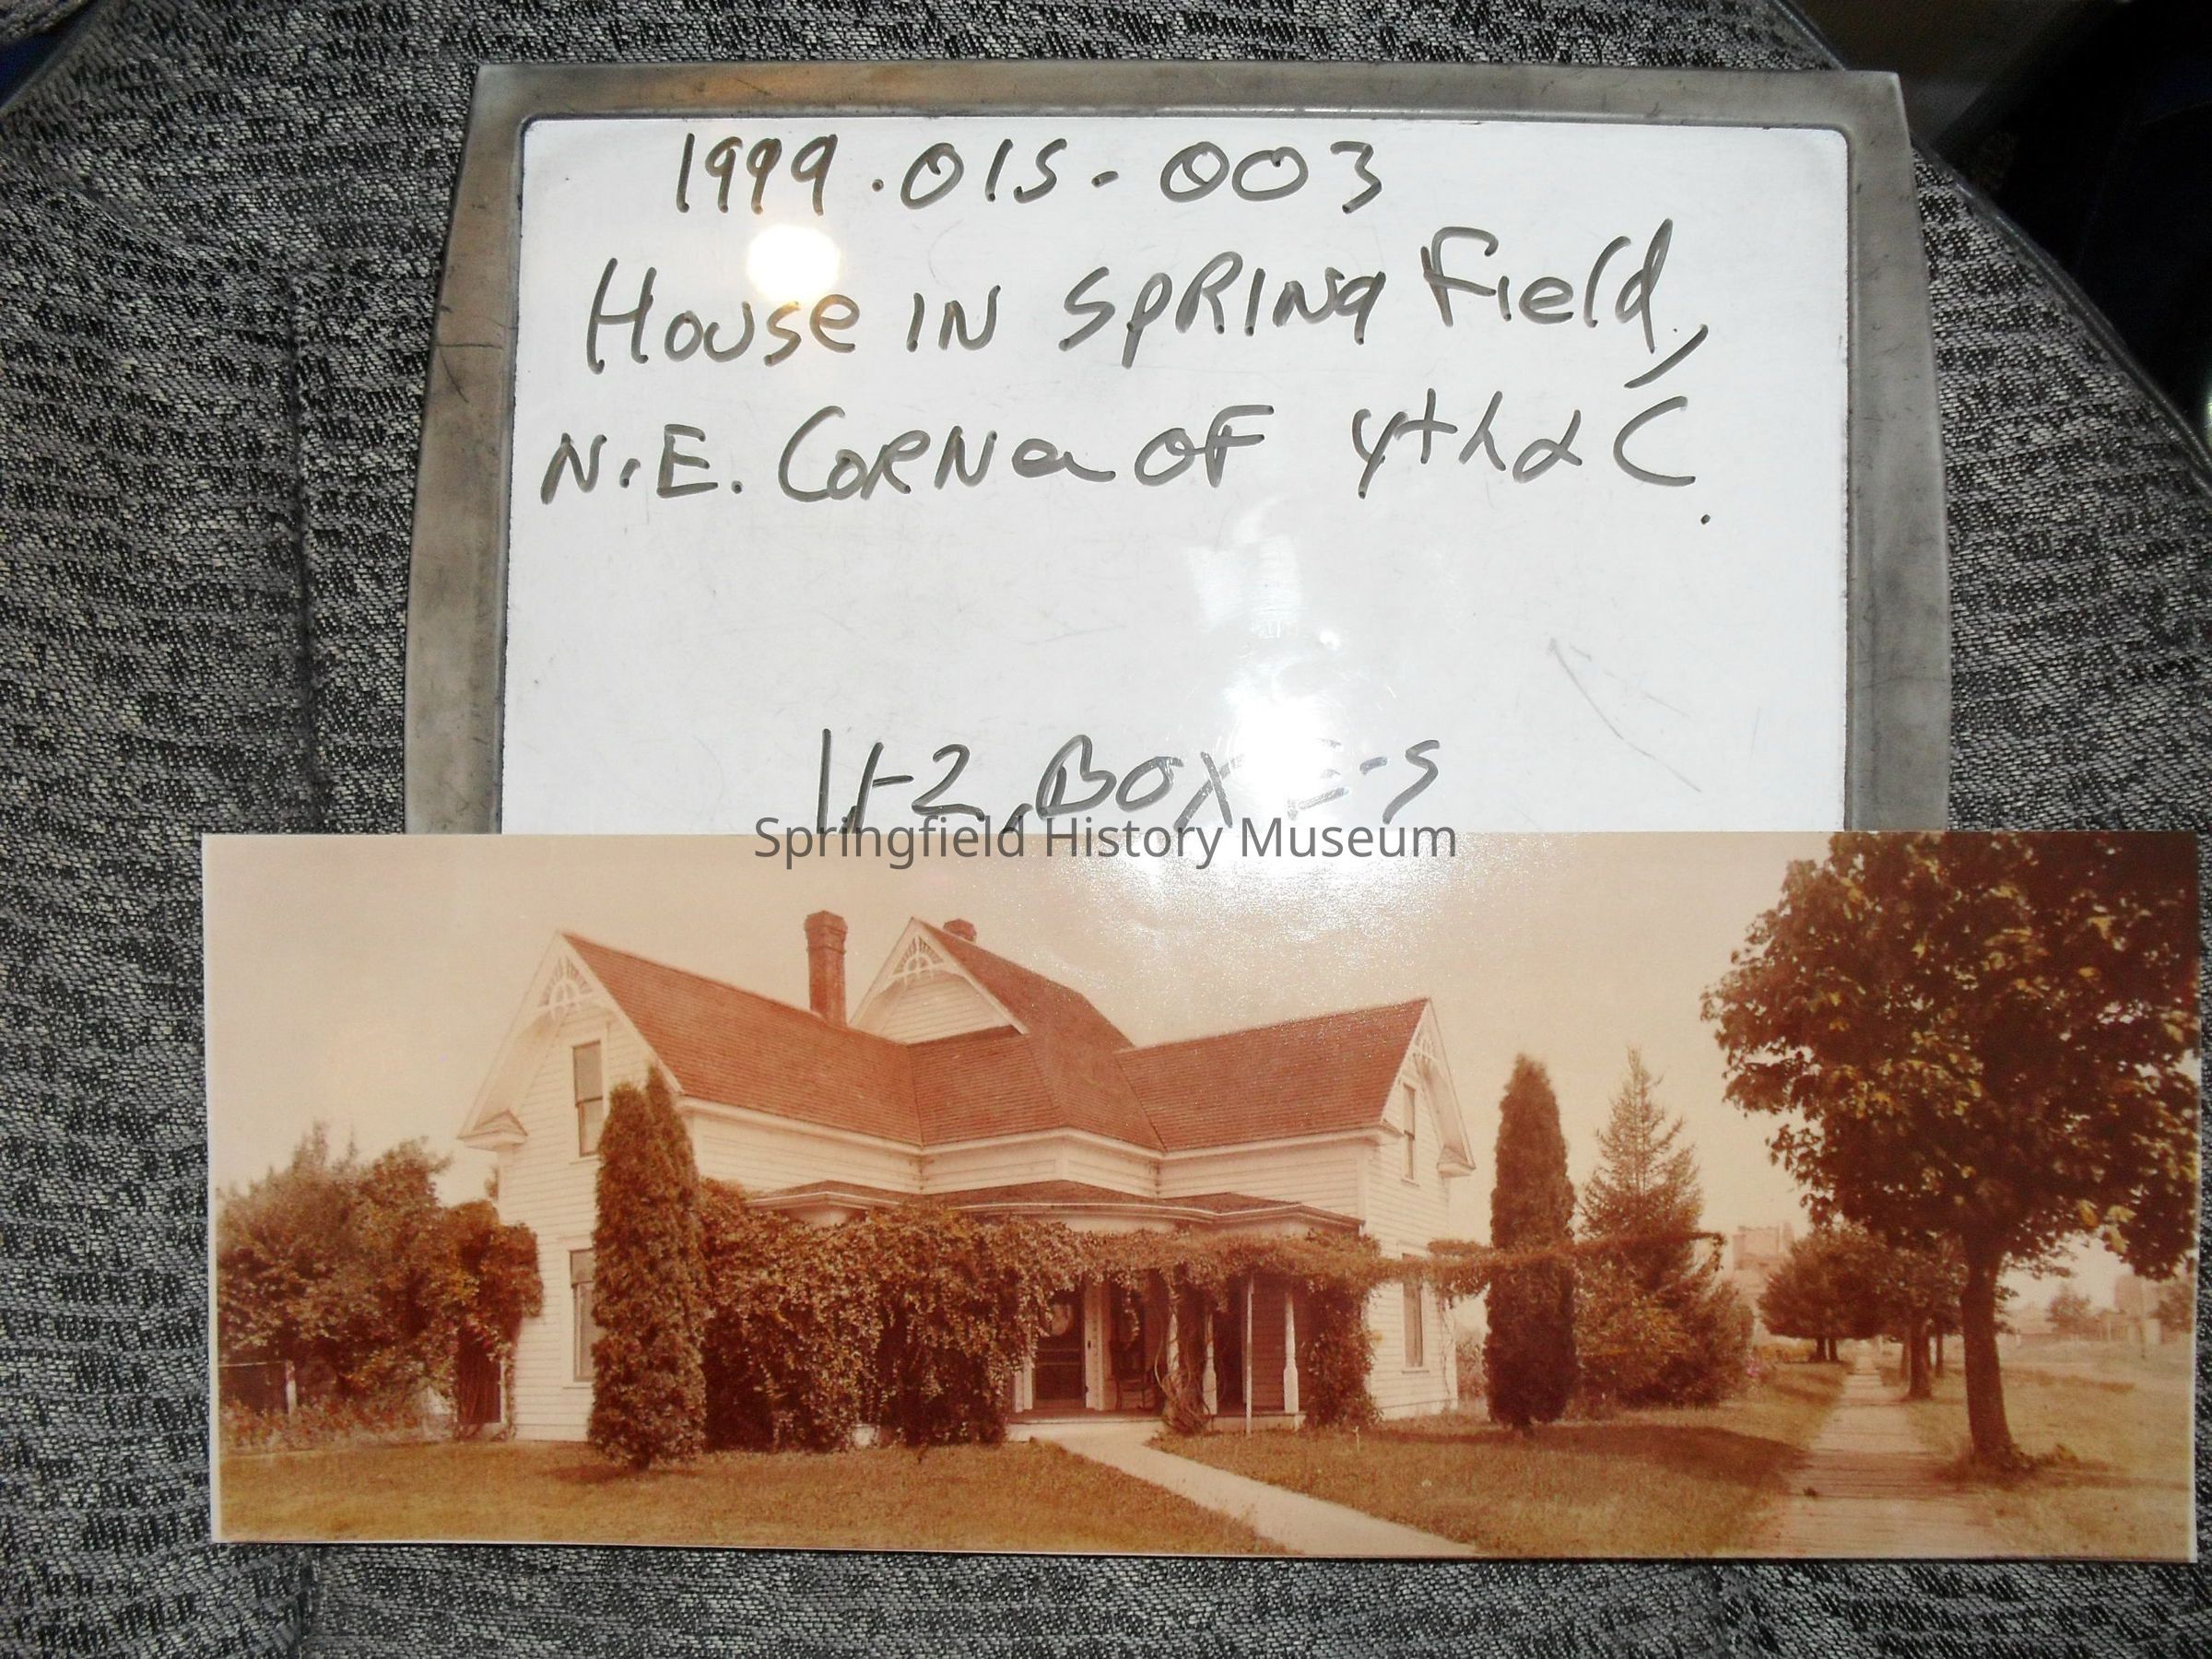 1999.015-003
House IN SpRINg Field,
N.E. CoRNer OF 4th & C.
Box
Springfield History Museum